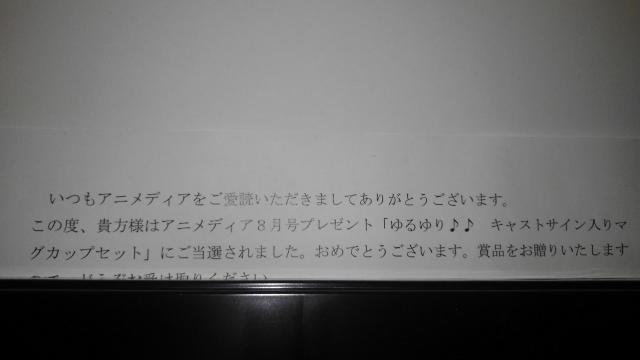 いつもアニメディアをご愛読いただきましてありがとうございます。
この度、貴方様はアニメディア８月号プレゼント「ゆるゆり♪♪　キャストサイン入りマ
グカップセット」にご当選されました。おめでとうございます。賞品をお贈りいたします
ので、どうぞお受け取りください